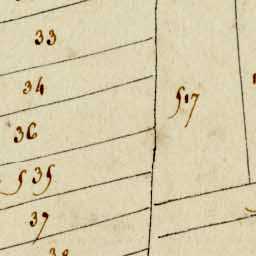 33
34
517
36
535
37
38